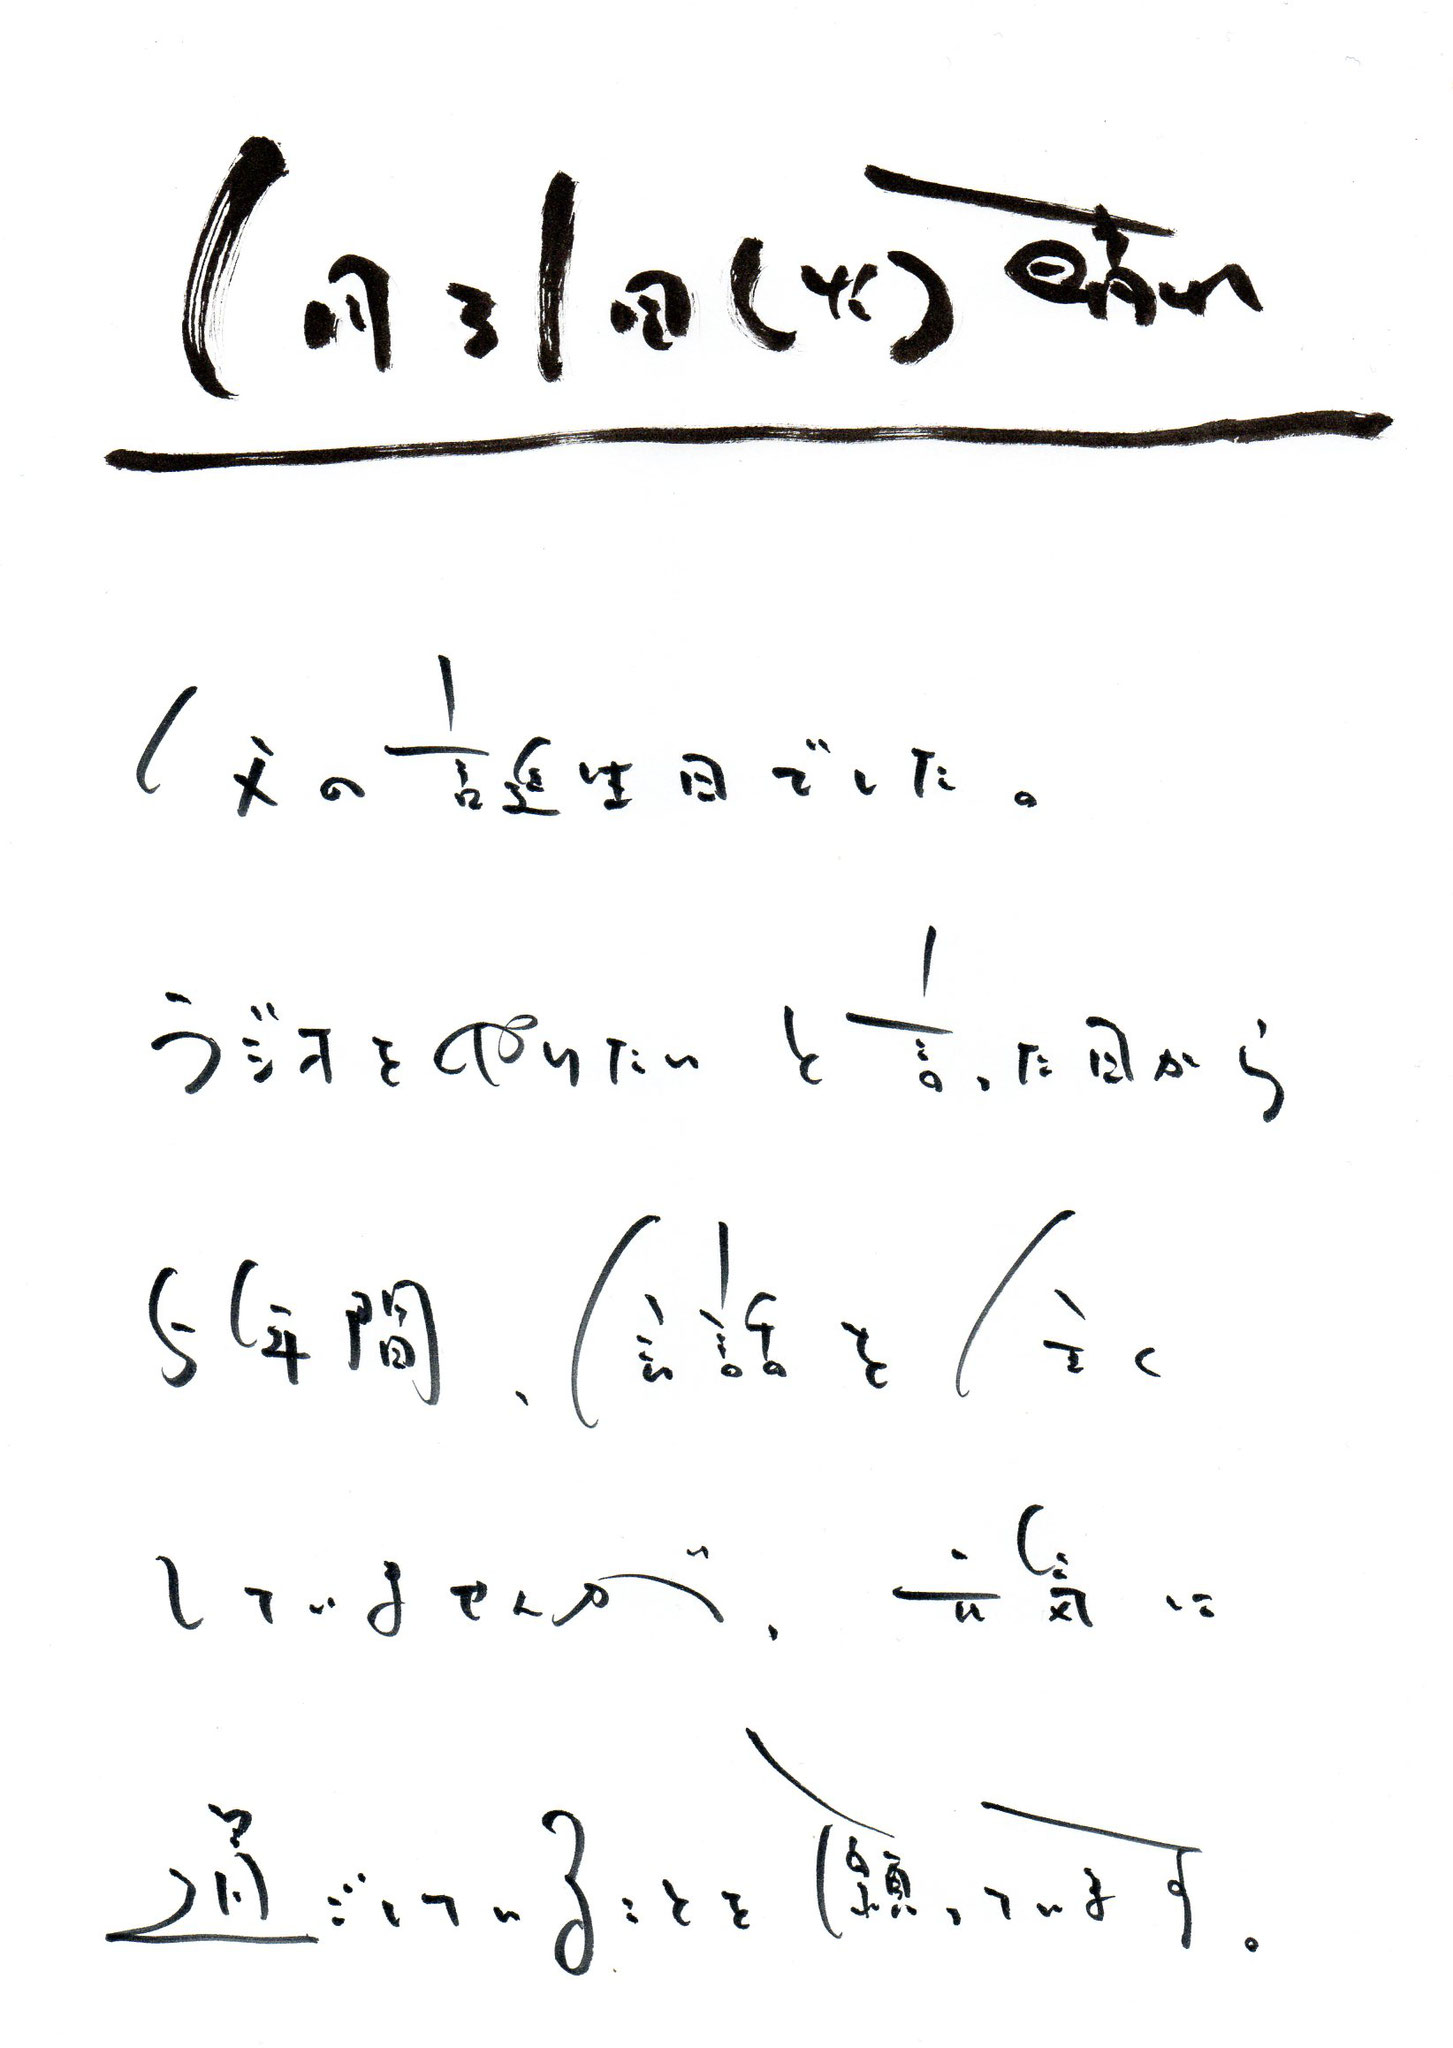 1月31日(火) 晴れ
父の誕生日でした。
ラジオをやりたいと言った日から
5年間、会話を全く
していませんが、元気に
過ごしていることを願っています。